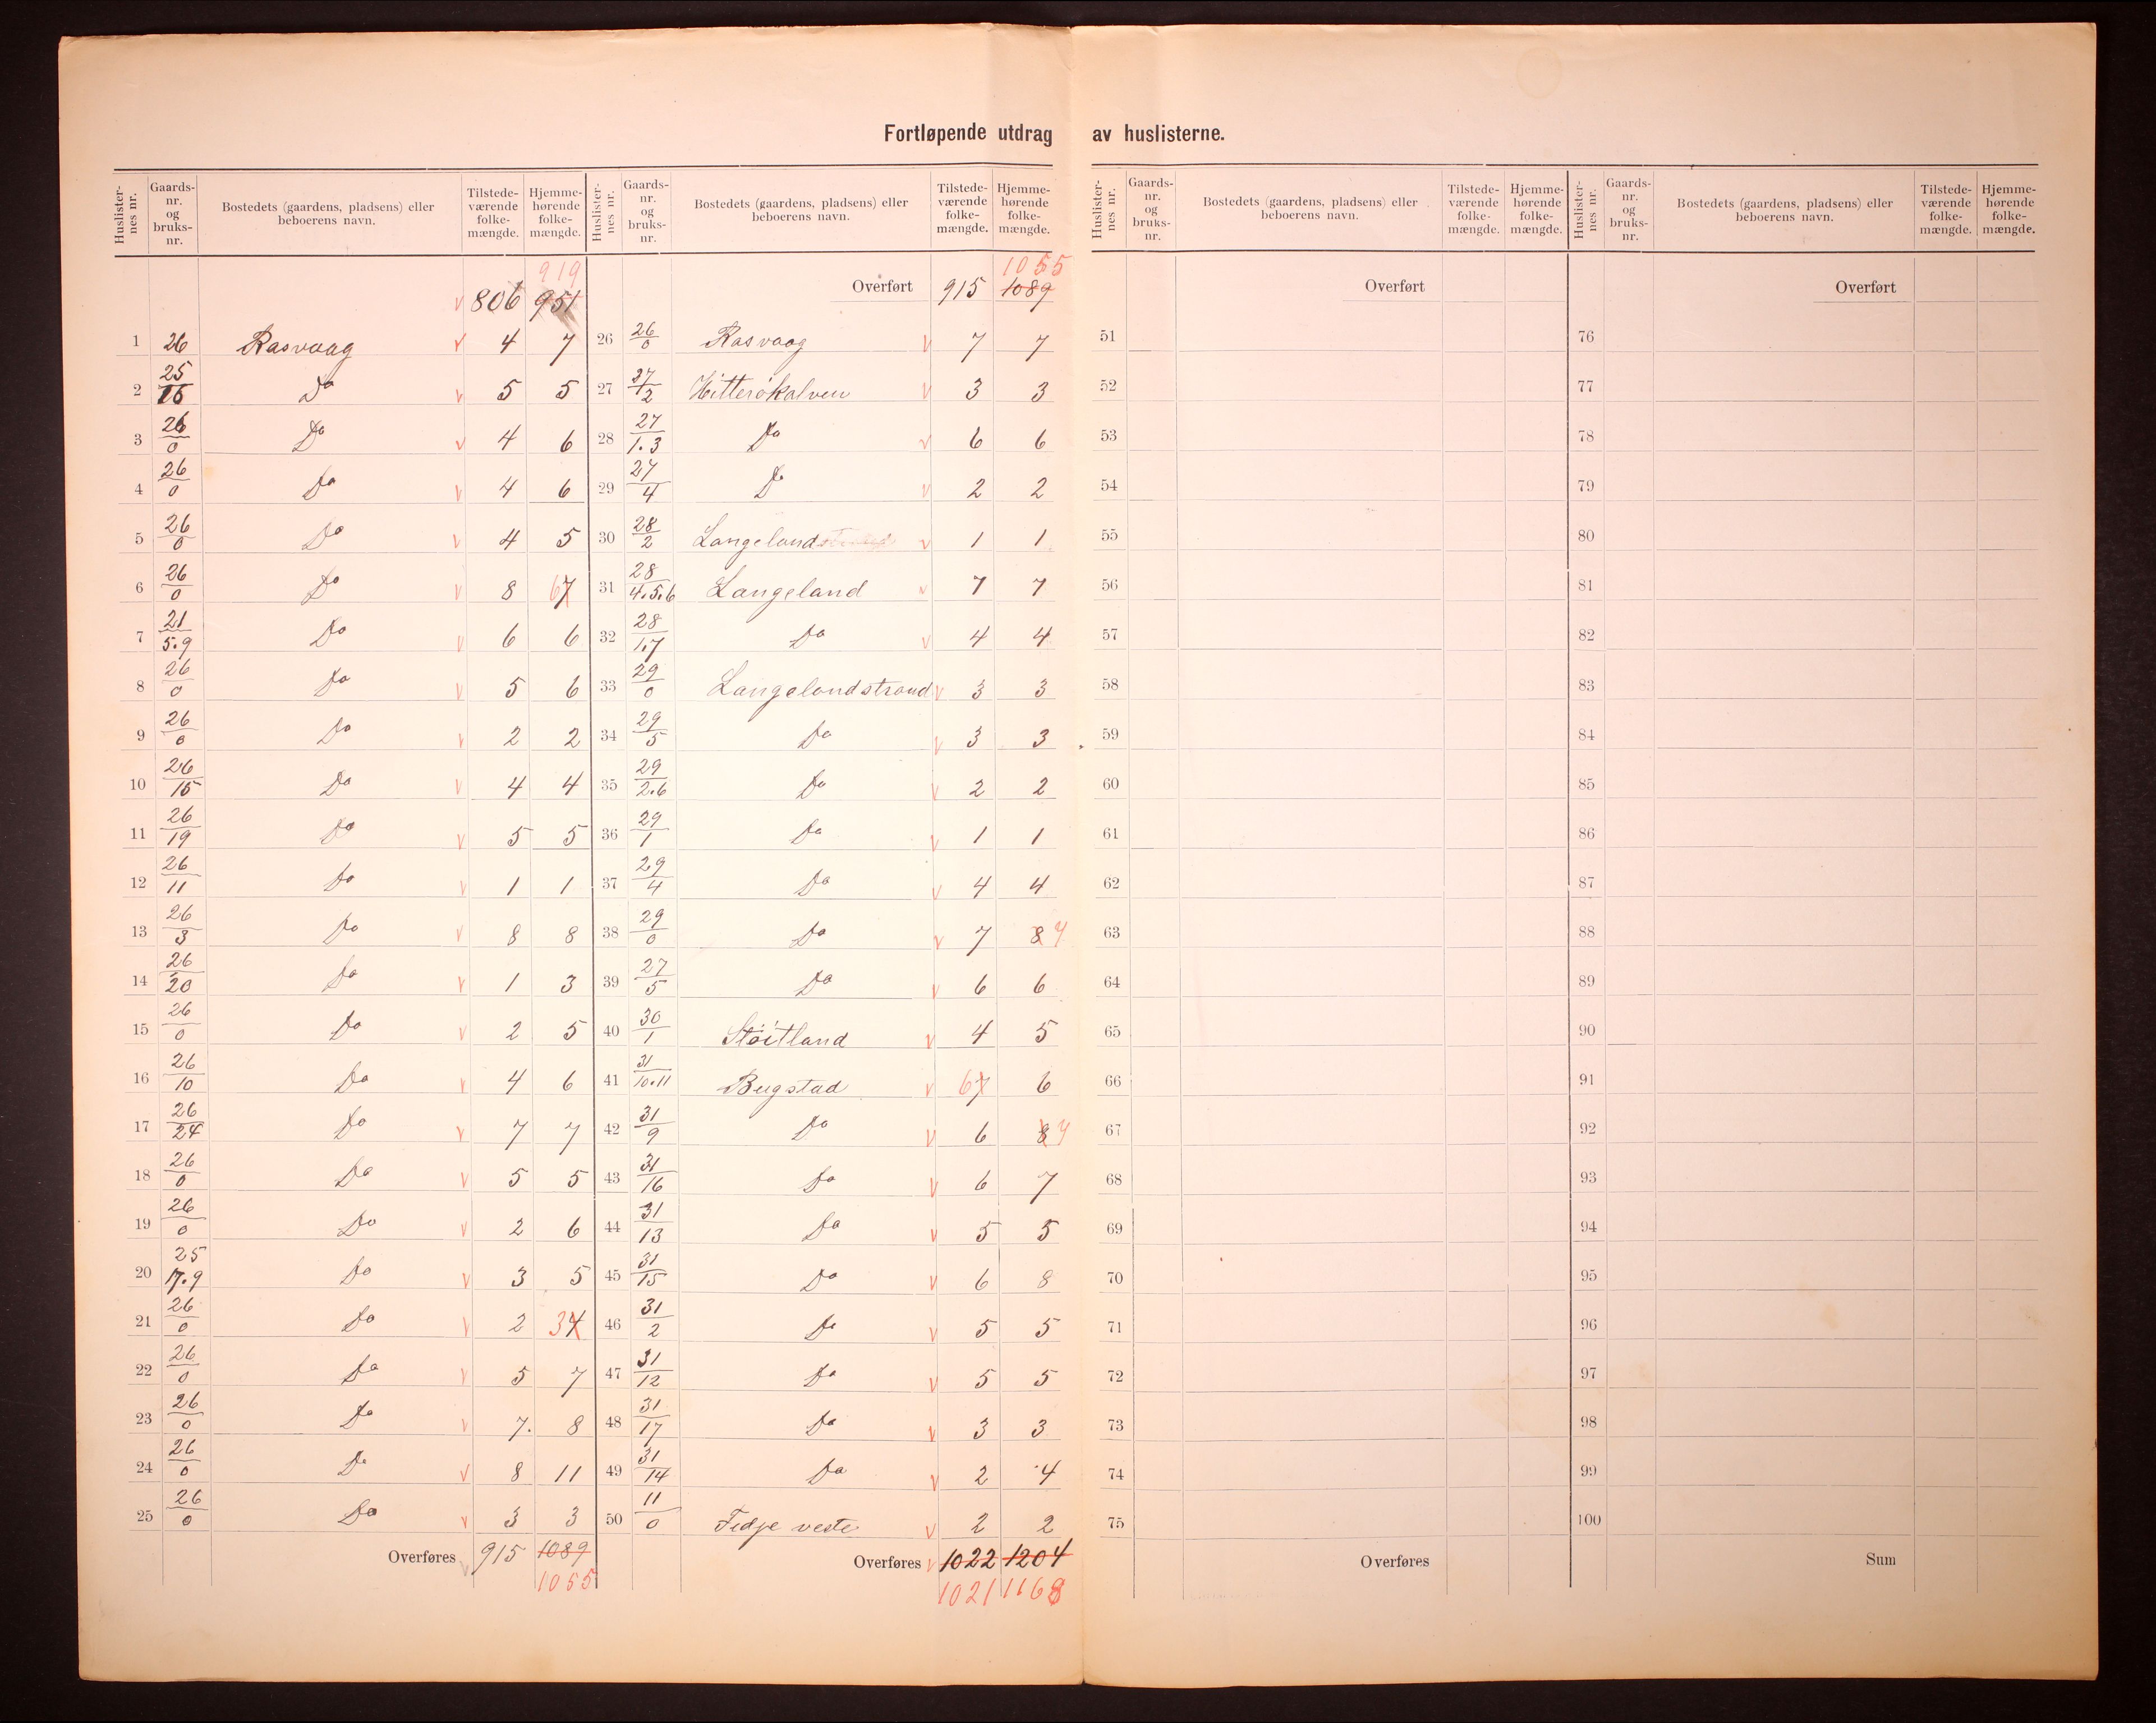 Fortløpende utdrag av huslisterne.
Huslisternes nr. | Gaards-nr. og bruks-nr. | Bostedets (gaardens, pladsens) eller beboerens navn. | Tilstedeværende folkemængde. | Hjemmehørende folkemængde.
919
806 951
1 26 Rasvaag 4 7
2 25/16 Do 5 5
3 26/0 Do 4 6
4 26/0 Do 4 6
5 26/0 Do 4 5
6 26/0 Do 8 6 7
7 21/5.9 Do 6 6
8 26/0 Do 5 6
9 26/0 Do 2 2
10 26/15 Do 4 4
11 26/19 Do 5 5
12 26/11 Do 1 1
13 26/3 Do 8 8
14 26/20 Do 1 3
15 26/0 Do 2 5
16 26/10 Do 4 6
17 26/24 Do 7 7
18 26/0 Do 5 5
19 26/0 Do 2 6
20 25/17.9 Do 3 5
21 26/0 Do 2 3 4
22 26/0 Do 5 7
23 26/0 Do 7. 8
24 26/0 Do 8 11
25 26/0 Do 3 3
Overføres 915 1089
1055
Huslisternes nr. | Gaards-nr. og bruks-nr. | Bostedets (gaardens, pladsens) eller beboerens navn. | Tilstedeværende folkemængde. | Hjemmehørende folkemængde.
1055
Overført 915 1089
26 26/0 Rasvaag 7 7
27 27/2 Hitterökalven 3 3
28 27/1.3 Do 6 6
29 27/4 Do 2 2
30 28/2 Langeland 1 1
31 28/4.5.6 Langeland 7 7
32 28/1.7 Do 4 4
33 29/0 Langelandstrand 3 3
34 29/5 Do 3 3
35 29/2.6 Do 2 2
36 29/1 Do 1 1
37 29/4 Do 4 4
38 29/0 Do 7 8 7
39 27/5 Do 6 6
40 30/1 Stöitland 4 5
41 31/10.11 Bugstad 6 7 6
42 31/9 Do 6 8 7
43 31/16 Do 6 7
44 31/13 Do 5 5
45 31/15 Do 6 8
46 31/2 Do 5 5
47 31/12 Do 5 5
48 31/17 Do 3 3
49 31/14 Do 2 4
50 11/0 Fedje veste 2 2
Overføres 1022 1204
1021 1168
Huslisternes nr. | Gaards-nr. og bruks-nr. | Bostedets (gaardens, pladsens) eller beboerens navn. | Tilstedeværende folkemængde. | Hjemmehørende folkemængde.
Overført
51
52
53
54
55
56
57
58
59
60
61
62
63
64
65
66
67
68
69
70
71
72
73
74
75
Overføres
Huslisternes nr. | Gaards-nr. og bruks-nr. | Bostedets (gaardens, pladsens) eller beboerens navn. | Tilstedeværende folkemængde. | Hjemmehørende folkemængde.
Overført
76
77
78
79
80
81
82
83
84
85
86
87
88
89
90
91
92
93
94
95
96
97
98
99
100
Sum